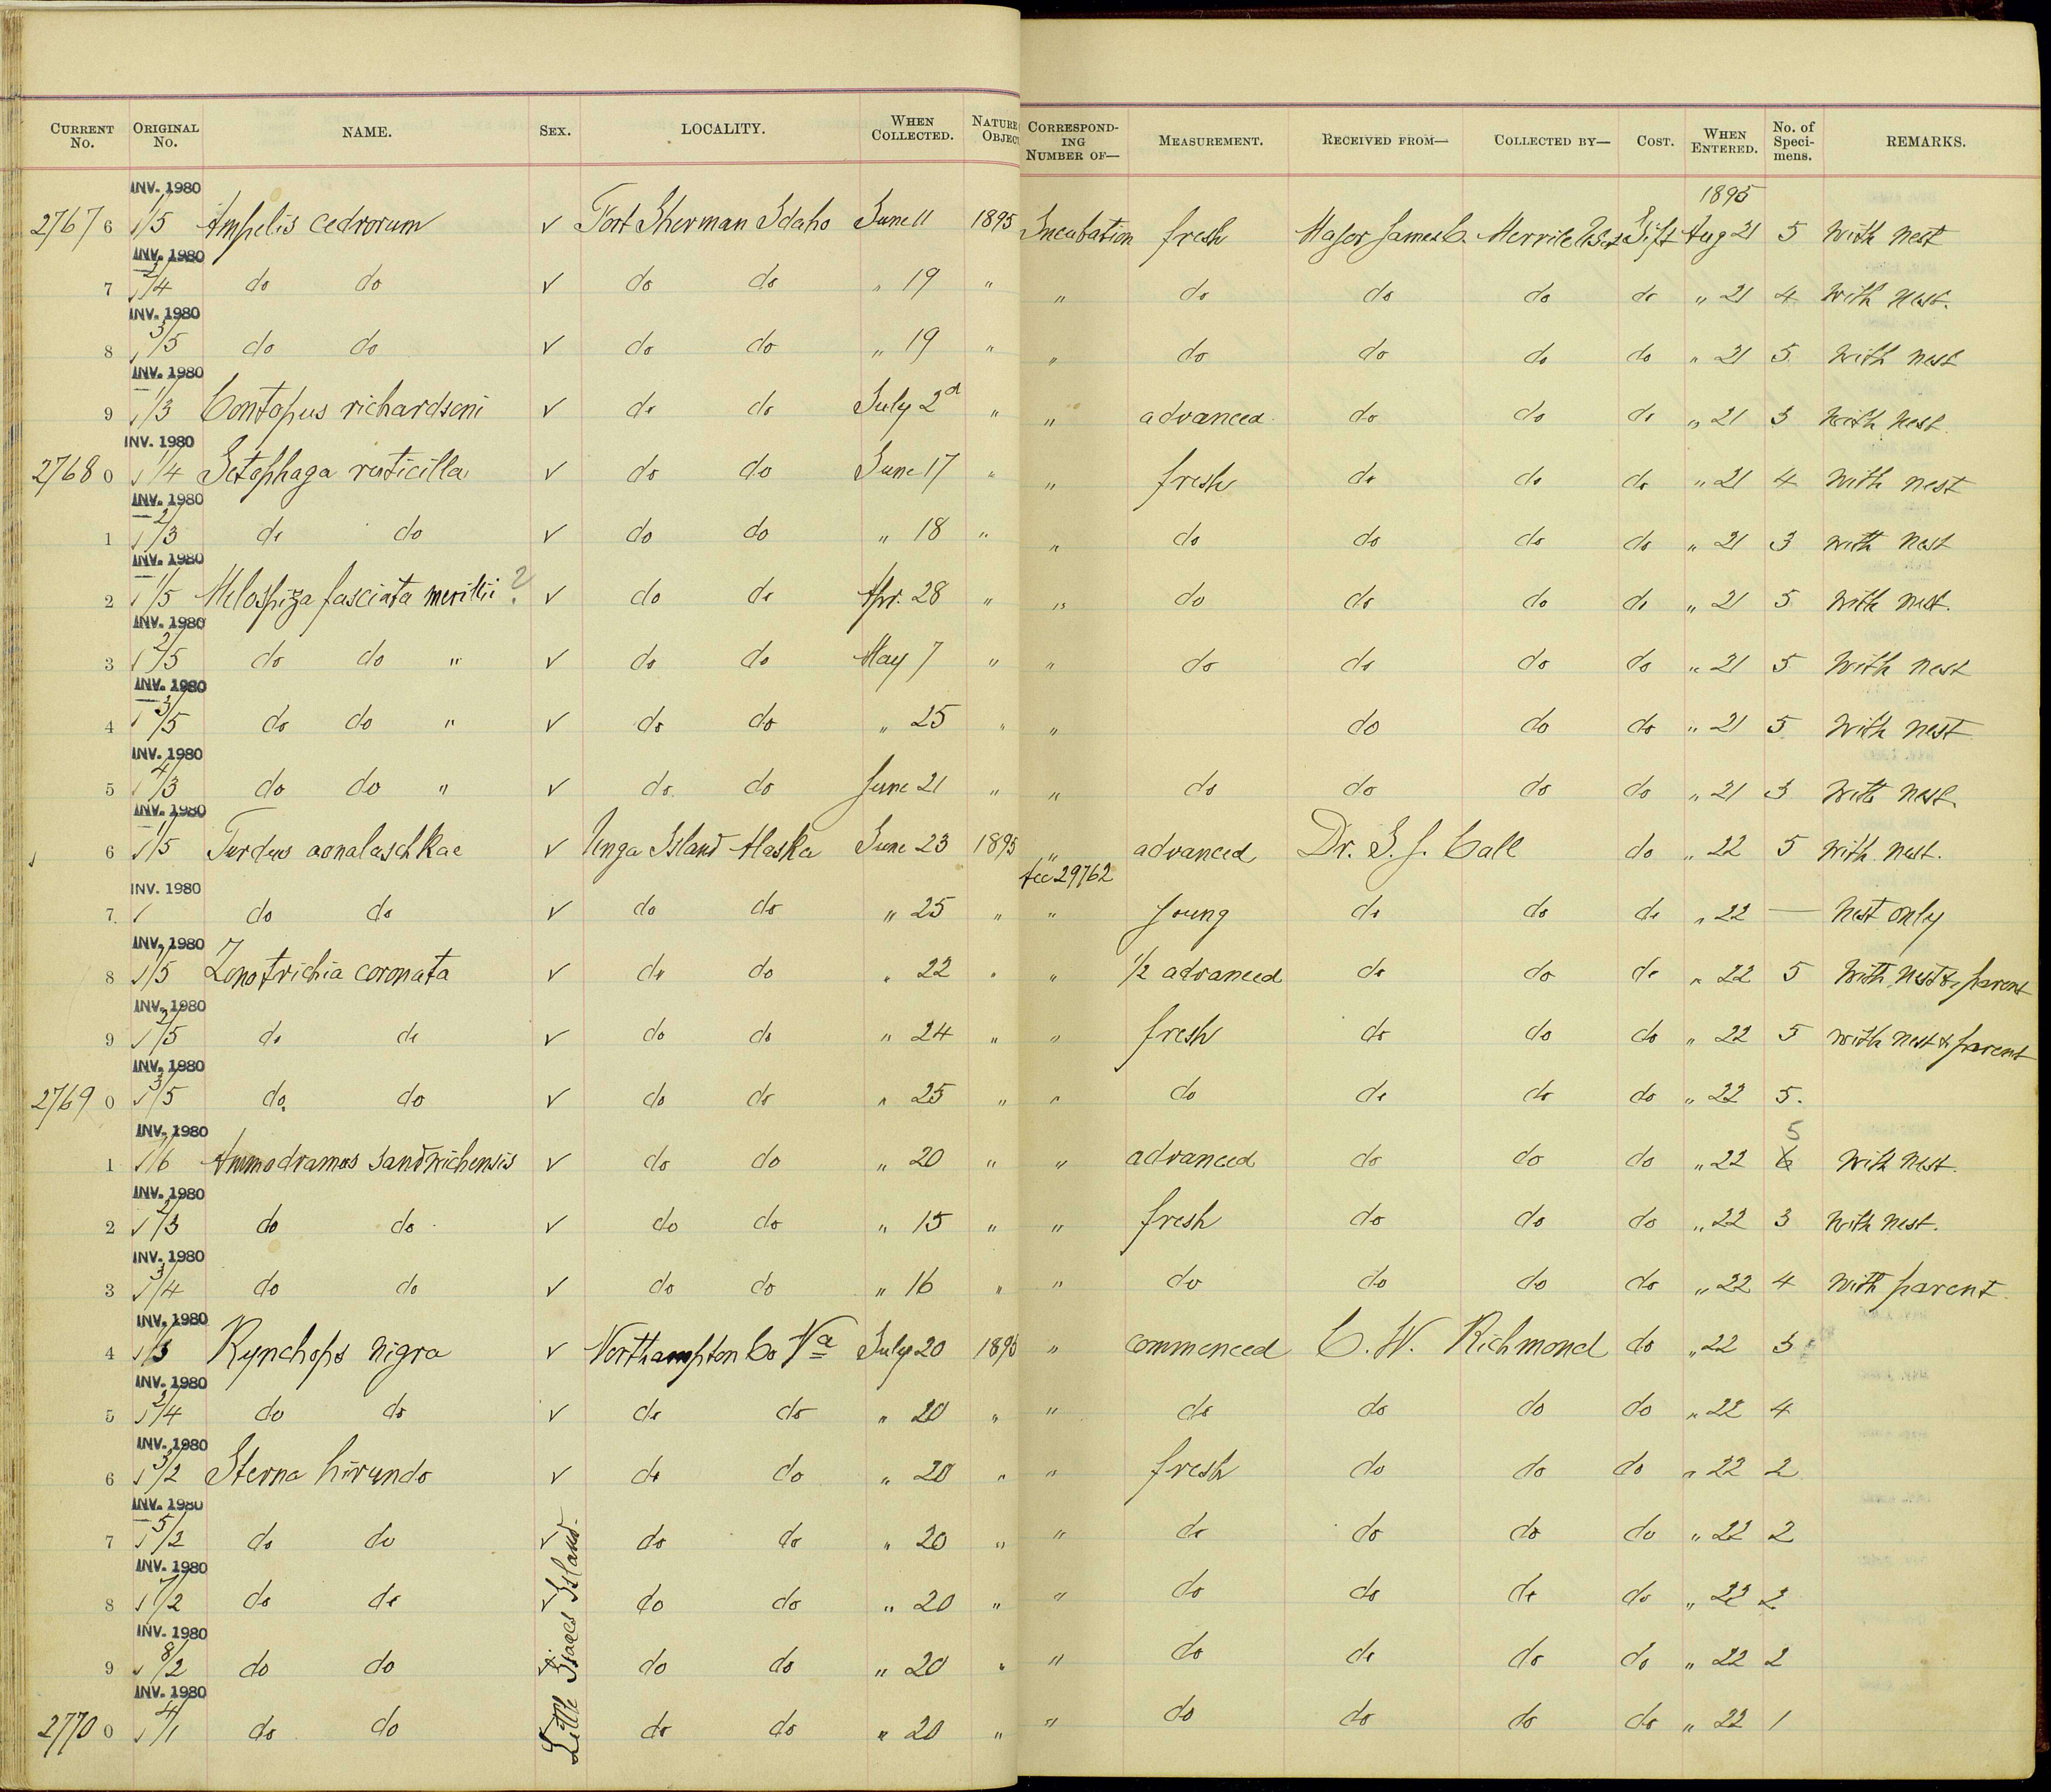 CURRENT No. ORIGINAL No. NAME. SEX. LOCALITY. WHEN COLLECTED. NATURE OBJECT CORRESPONDING NUMBER OF— MEASUREMENT. RECEIVED FROM— COLLECTED BY— COST. WHEN ENTERED. No. of Specimens. REMARKS.
INV. 1980 1895
2767 6 √ 1/5 Ampelis cedrorum √ Fort Sherman Idaho June 11 1895 Incubation fresh Major James C. Merrill Gift Aug 21 5 With nest
INV. 1980
7 √ 2/4 do do √ do do " 19 " " do do do do " 21 4 With nest.
INV. 1980
8 √ 3/5 do do √ do do " 19 " " do do do do " 21 5 With nest
INV. 1980
9 √ 1/3 Contopus richardsoni √ do do July 2d " " advanced do do do " 21 3 With nest.
INV. 1980
2768 0 √ 1/4 Setophaga ruticilla √ do do June 17 " " fresh do do do " 21 4 With nest
INV. 1980
1 √ 2/3 do do √ do do " 18 " " do do do do " 21 3 with nest
INV. 1980
2 √ 1/5 Melospiza fasciata merillii ? √ do do Apr. 28 " " do do do do " 21 5 With nest.
INV. 1980
3 √ 2/5 do do " √ do do May 7 " " do do do do " 21 5 With nest
INV. 1980
4 √ 3/5 do do " √ do do " 25 " " do do do " 21 5 With nest
INV. 1980
5 √ 4/3 do do " √ do do June 21 " " do do do do " 21 3 With nest.
INV. 1980
6 √ 1/5 Turdus aonalaschkae √ Unga Island Alaska June 23 1895 " advanced Dr. S. J. Call do " 22 5 With nest.
Acc 29762
INV. 1980
7 √ do do √ do do " 25 " " young do do do " 22 — Nest only
INV. 1980
8 √ 1/5 Zonotrichia coronata √ do do " 22 " " 1/2 advanced do do do " 22 5 With nest & parent
INV. 1980
9 √ 2/5 do do √ do do " 24 " " fresh do do do " 22 5 With nest & parent
INV. 1980
2769 0 √ 3/5 do do √ do do " 25 " " do do do do " 22 5.
INV. 1980 5
1 √ 1/6 Ammodramus sandwichensis √ do do " 20 " " advanced do do do " 22 6 With nest.
INV. 1980
2 √ 2/3 do do √ do do " 15 " " fresh do do do " 22 3 With nest.
INV. 1980
3 √ 3/4 do do √ do do " 16 " " do do do do " 22 4 With parent.
INV. 1980
4 √ 1/3 Rynchops nigra √ Northampton Co Va July 20 1895 " commenced C. W. Richmond do " 22 3
INV. 1980
5 √ 2/4 do do √ do do " 20 " " do do do do " 22 4
INV. 1980
6 √ 3/2 Sterna hirundo √ do do " 20 " " fresh do do do " 22 2
INV. 1980
7 √ 5/2 do do √ do do " 20 " " do do do do " 22 2
INV. 1980
8 √ 7/2 do do √ do do " 20 " " do do do do " 22 2
INV. 1980
9 √ 8/2 do do √ do do " 20 " " do do do do " 22 2
INV. 1980
2770 0 √ 4/1 do do do do " 20 " " do do do do " 22 1
Little Isaacs Island.